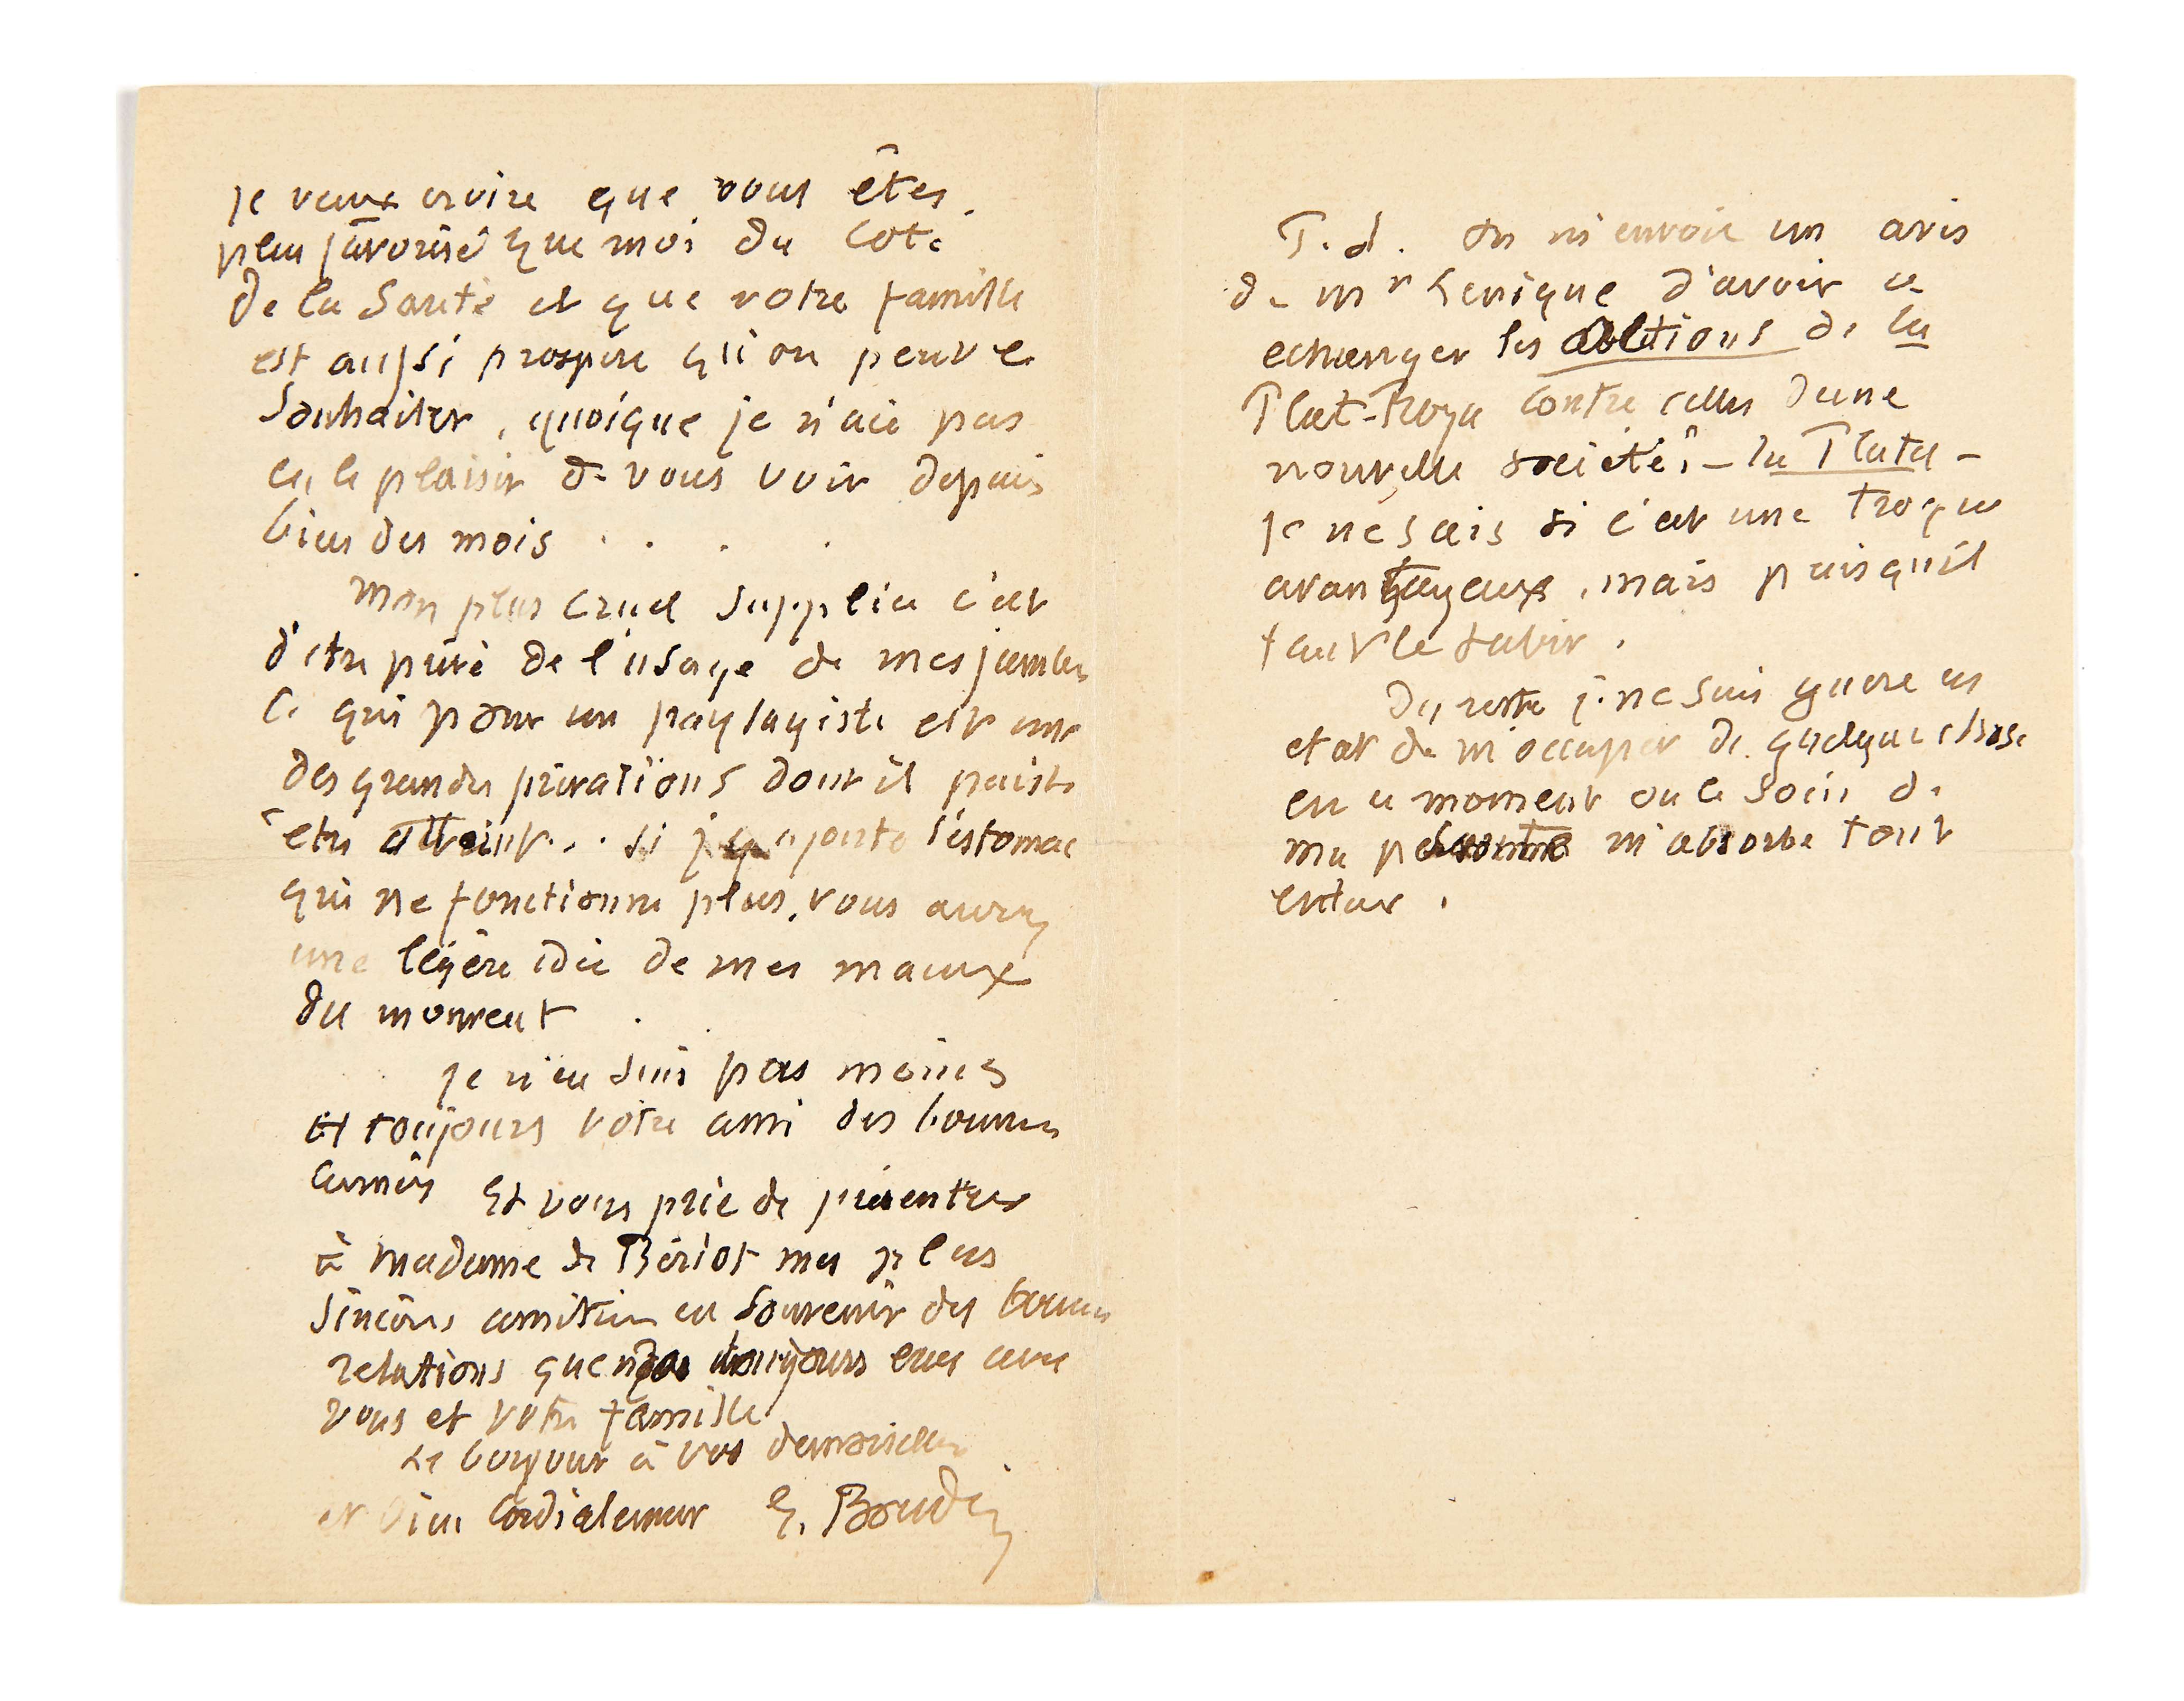 Je veux croire que vous êtes
plus favorisé que moi du coté
de la Santé et que votre famille
est aussi prospère qu'on peuve
Souhaiter, quoique je n'aie pas
eu le plaisir de vous voir depuis
bien des mois . . . .
Mon plus cruel supplice c'est
d'etre privé de l'usage de mes jambes
Ce qui pour un paysagiste est une
des grandes privations dont il puisse
être atteint... si j'y ajoute l'estomac
qui ne fonctionne plus, vous aurez
une légère idée de mes maux
du moment .
Je n'en suis pas moins
et toujours votre ami des bonnes
années Et vous prie de présenter
à Madame de Bériot mes plus
Sincères amitiés en Souvenir des bonnes
relations que toujours eues avec
vous et votre famille
Le bonjour à vos demoiselles
et bien Cordialement E. Boudin
On m'envoie un avis
de Mr d'avoir a
echanger les actions de la
Plat-Roya contre celles d'une
nouvelle société - la Plata -
Je ne sais si c'est une troque
avantageuse, mais puisqu'il
faut le subir .
Du reste je ne suis guere en
etat de m'occuper de quelque chose
en ce moment ou le Soin de
ma personne m'absorbe tout
entier .